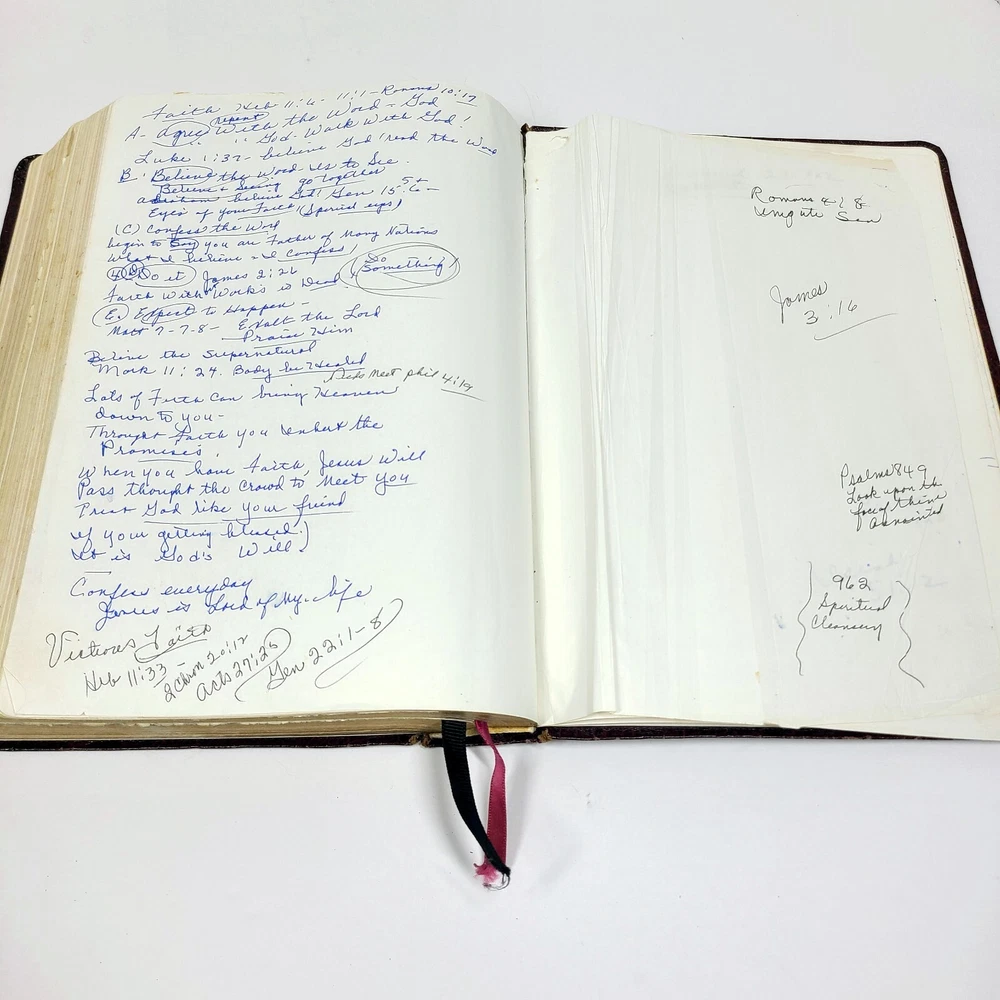 Faith Heb 11:6 - 11:1 - Romans 10:17
repent
A - agree With the Word - God
" " God - Walk With God!
Luke 1:37 - believe God! read the Word
B. Believe the Word - us to See
Believe & Seeing go together
abraham believe God! Gen 15 5+6 -
Eyes of your Faith (Special eyes)
(C) Confess the Word
begin to Say you are Father of Many Nations
What I believe - I Confess!
(D) Do it James 2:26 Do Something
Faith With Works is Dead
E. Expect to Happen -
Matt 7-7-8 - Exalt the Lord
Praise Him
Belive the Supernatural
Mark 11:24. Body be Healed
Needs Meet phil 4:19
Lots of Faith Can bring Heaven
down to you -
Throught Faith you inhert the
Promises.
When you have Faith, Jesus Will
Pass thought the Crowd to Meet you
Treat God like your friend
if your getting blessed!
it is God's Will!
Confess everyday
Jesus is Lord of My Life
Victious Faith
Heb 11:33
2 Chron 20:12
Acts 27:25
Gen 22:1-8
Romans 4:8
Impute Sin
James
3:16
Psalms 84 9
Look upon the
face of thine
Annointed
962
Spiritual
Cleansery